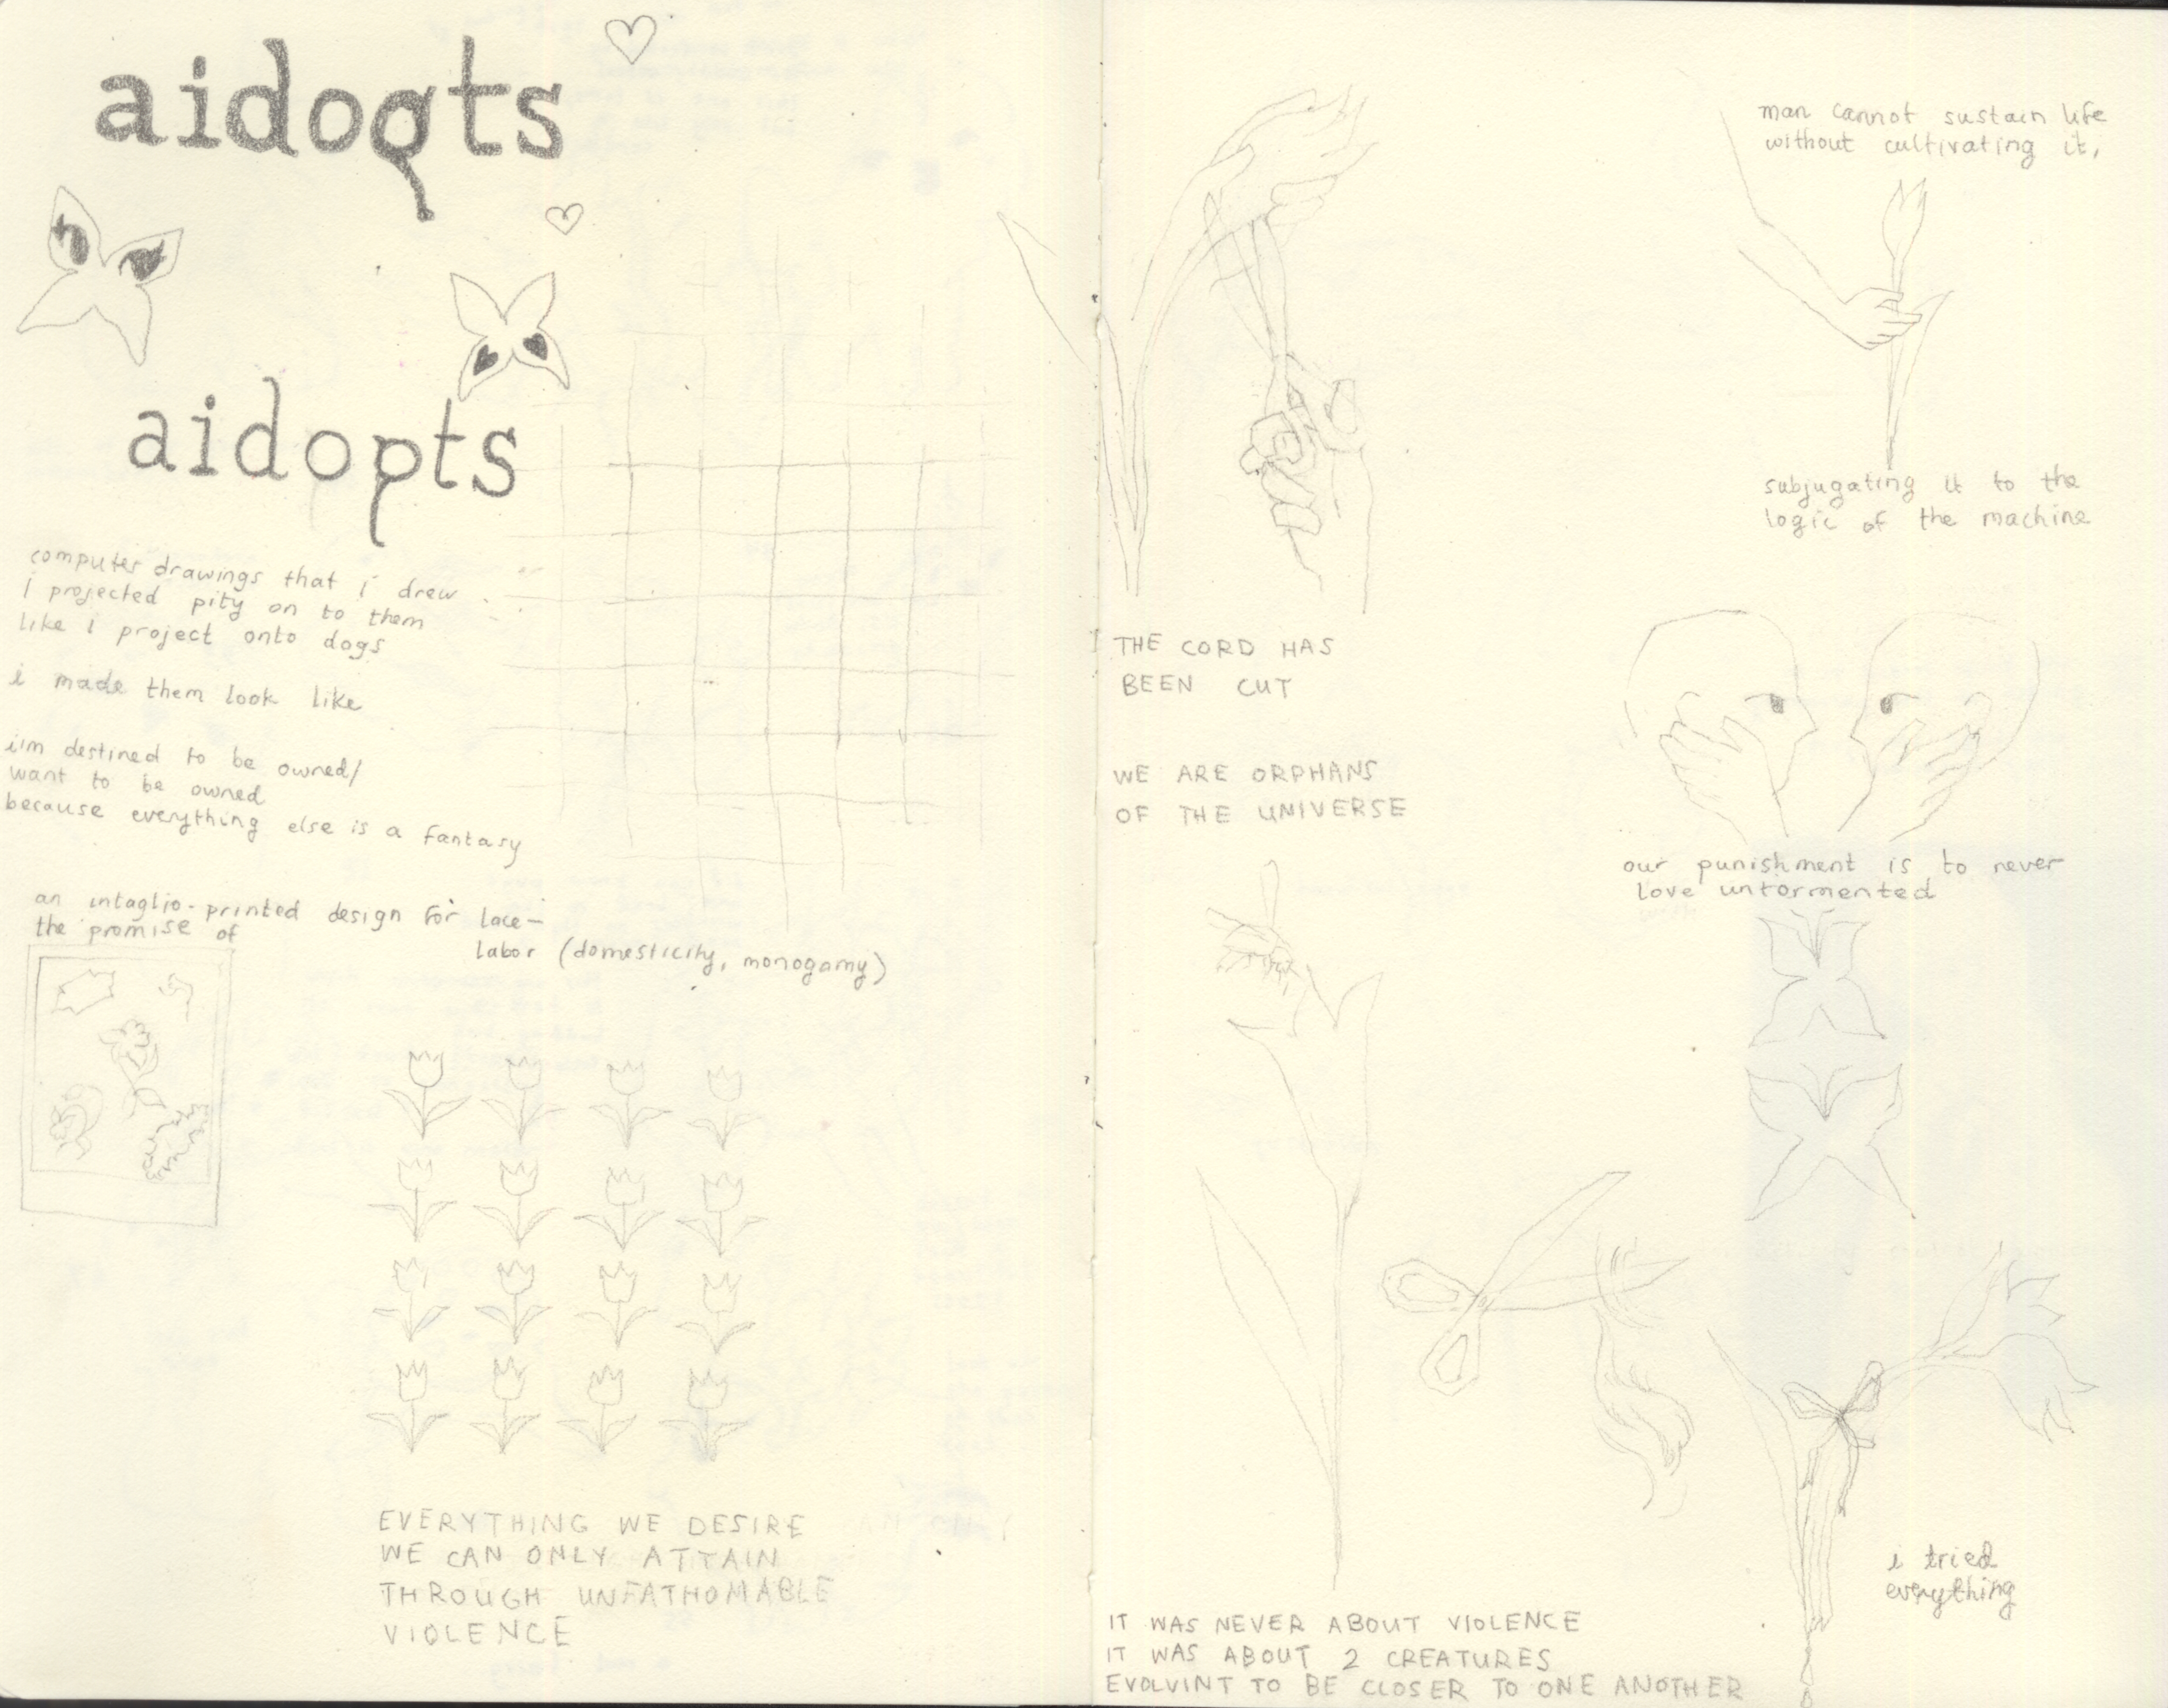 aidoqts
aidopts
computer drawings that i drew
I projected pity on to them
like I project onto dogs
i made them look like
iim destined to be owned/
want to be owned
because everything else is a fantasy
an intaglio-printed design for lace—
the promise of
labor (domesticity, monogamy)
EVERYTHING WE DESIRE
WE CAN ONLY ATTAIN
THROUGH UNFATHOMABLE
VIOLENCE
THE CORD HAS
BEEN CUT
WE ARE ORPHANS
OF THE UNIVERSE
IT WAS NEVER ABOUT VIOLENCE
IT WAS ABOUT 2 CREATURES
EVOLVINT TO BE CLOSER TO ONE ANOTHER
man cannot sustain life
without cultivating it,
subjugating it to the
logic of the machine
our punishment is to never
love untormented
i tried
everything